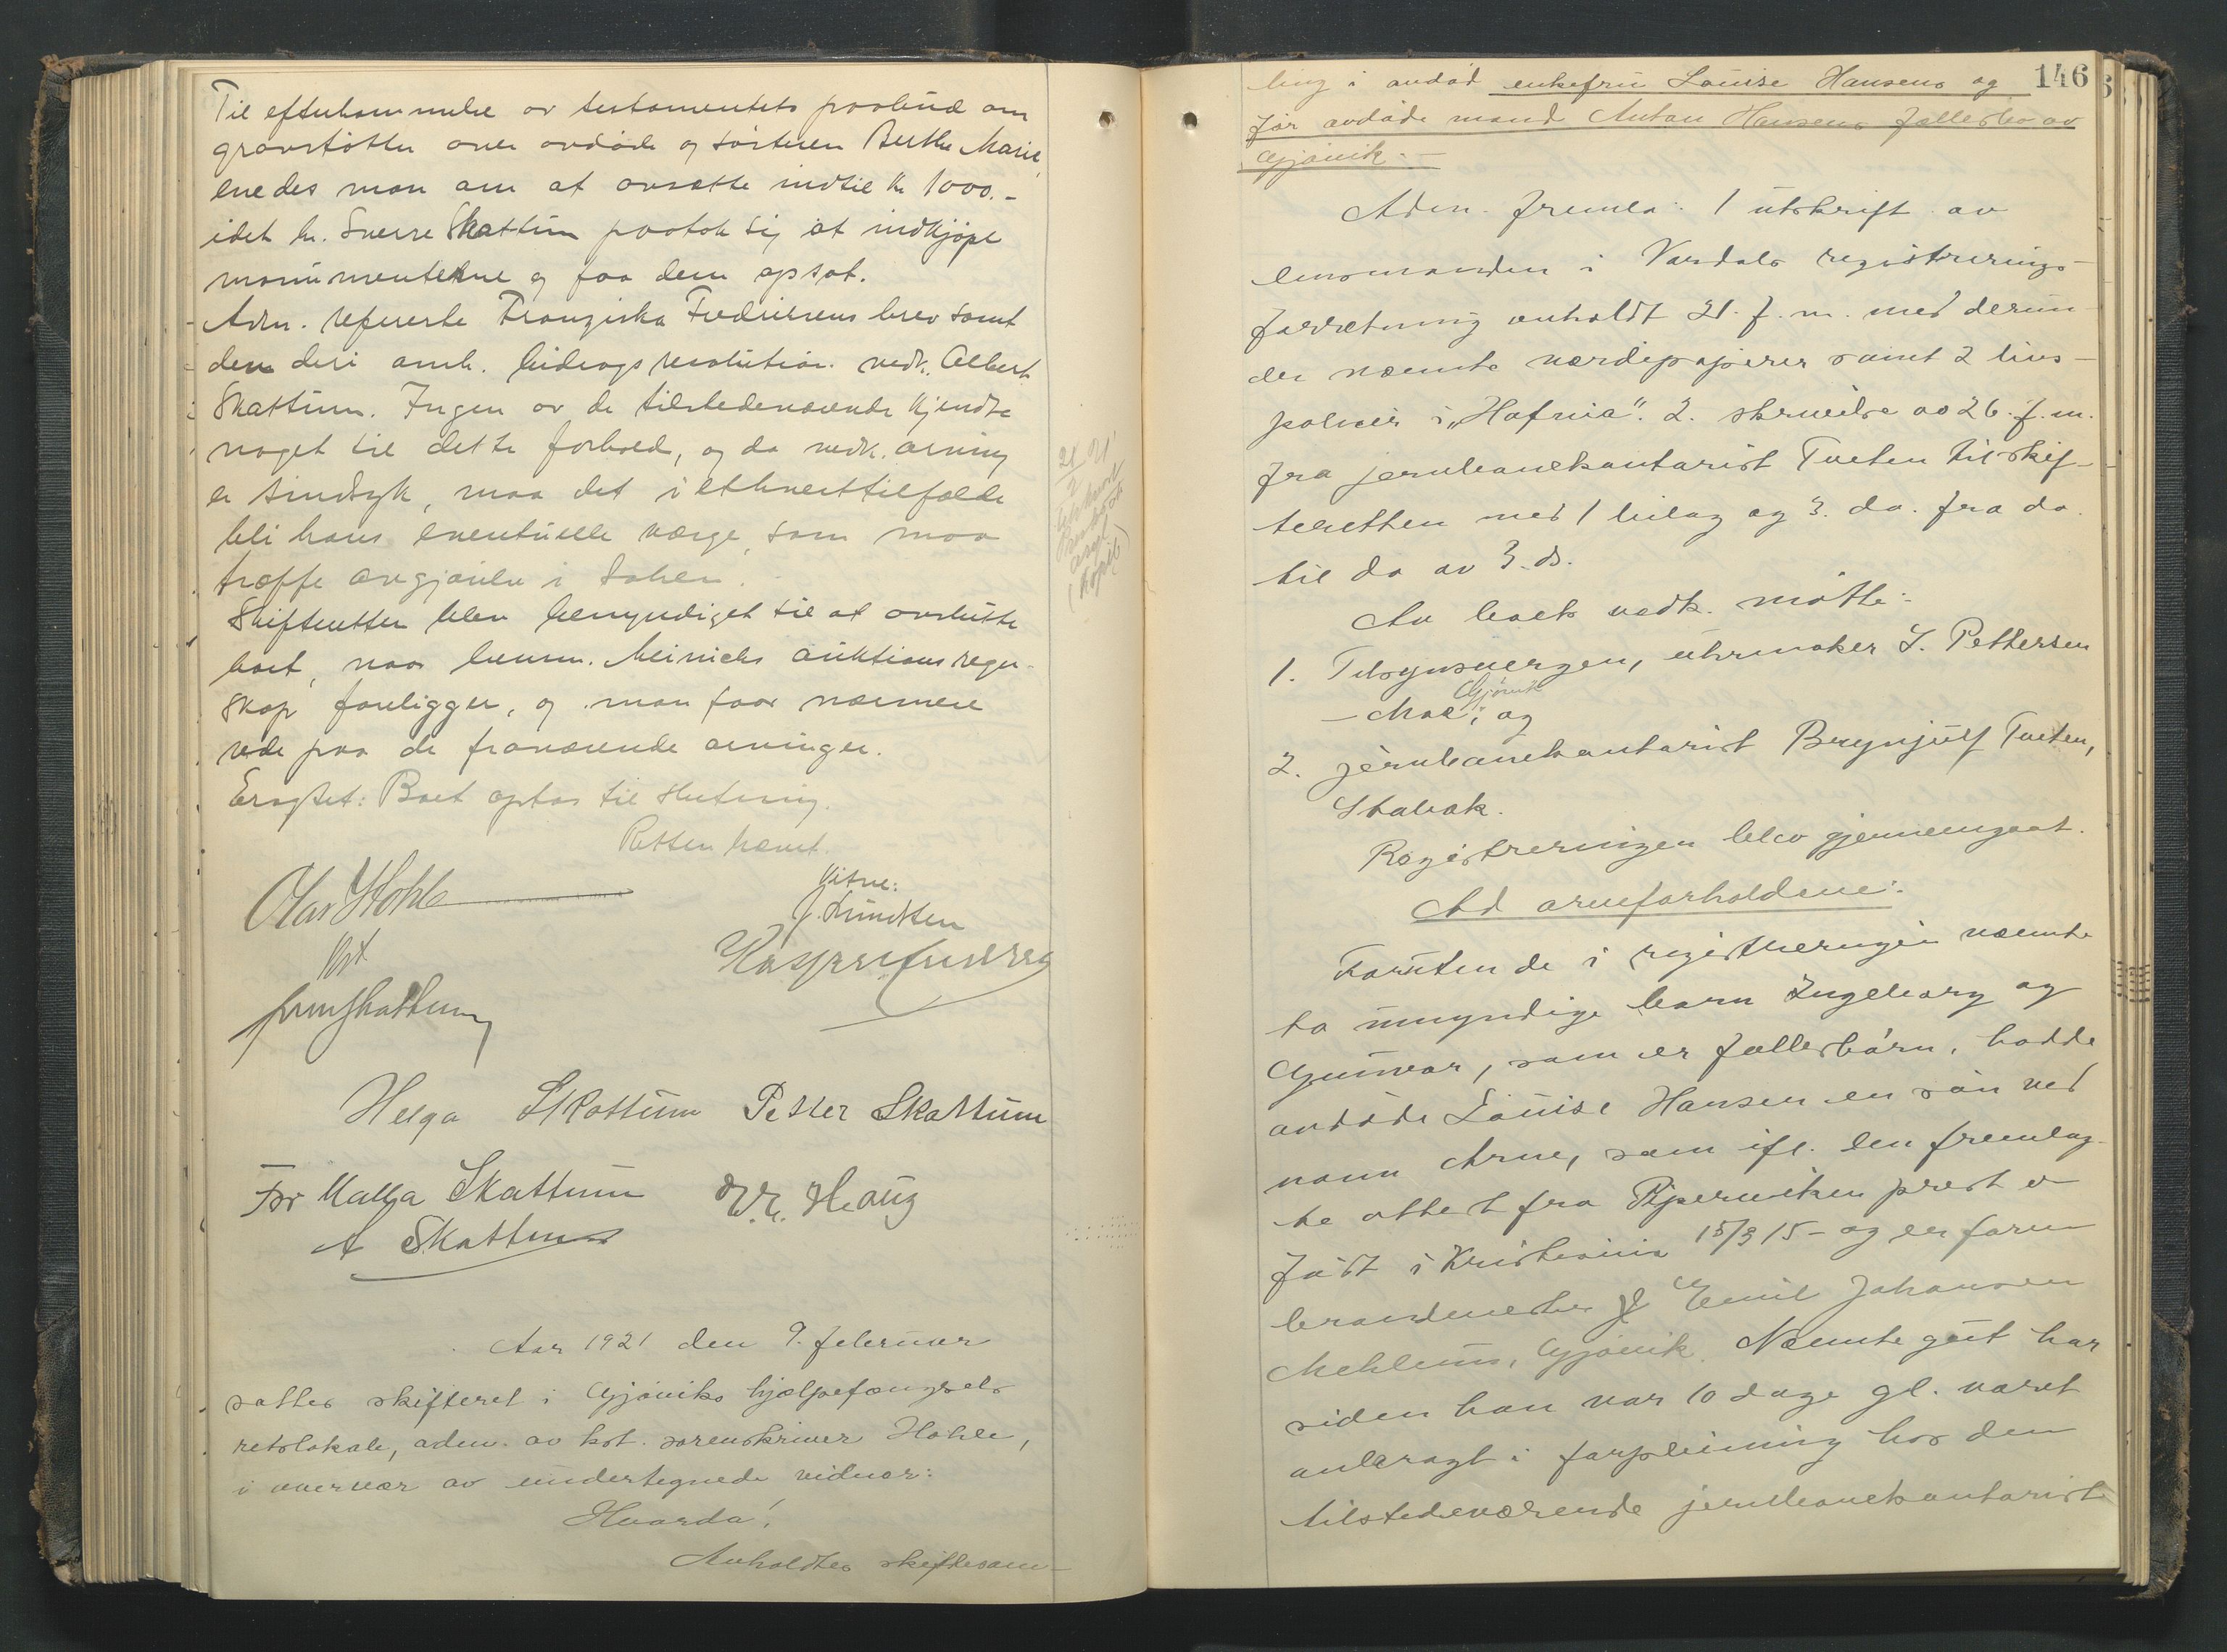 Til efterkommelse av testamentets paabud om
gravstøtter over avdøde og søsteren Berthe Marie,
enedes man om at avsætte indtil kr 1000.-
idet hr. Sverre Skattum paatok sig at indkjøpe
monumenterne og faa dem opsat.
Adm. refererte Franziska Fredriksens brev samt
den deri omh. bidragsresolution vedk. Albert
Skattum. Ingen av de tilstedeværende kjendte
noget til dette forhold, og da vedk. arving
er sindsyk, maa det i ethvert tilfælde
bli hans eventuelle værge, som maa
træffe avgjørelse i saken.
Skifteretten blev bemyndiget til at avslutte
boet, naar lensm. Meinichs auktionsregn-
skap foreligger, og man faar nærmere
rede paa de fraværende arvinger.
Eragtet: Boet optas til slutning.
Retten hævet.
Olav Hohle
kst
Vitne:
J. Knudsen
Helga Skattum Petter Skattum
For Mathea Skattum
A Skattum
Haug
Aar 1921 den 9. februar
sattes skifteret i Gjøviks hjælpefængsels
retslokale, adm. av kst. sorenskriver Hohle,
i overvær av undertegnede vidner:
Hvorda!
Avholdtes skiftesam-
21/2 21
146
ling i avdød enkefru Louise Hansens og
før avdøde mand Anton Hansens fællesbo av
Gjøvik.-
Adm. fremla: 1 utskrift av
lensmanden i Vardals registrerings-
forretning avholdt 21. f. m. med derun-
der nævnte værdipapirer samt 2 livs-
policer i "Hafnia". 2. skrivelse av 26. f. m.
fra jernbanekontorist Tveten til skif-
teretten med 1 bilag og 3. do. fra do.
til do av 3. ds.
Av boets vedk. møtte:
1. Tilsynsvergen, uhrmaker S. Pettersen
- Moe, Gjøvik; og
2. jernbanekontorist Brynjulf Tveten,
Stabæk.
Registreringen blev gjennemgaat.
Ad arveforholdene:
Foruten de i registreringen nævnte
to umyndige barn Ingeborg og
Gunvor, som er fællesbørn, hadde
avdøde Louise Hansen en søn ved
navn Arne, som ifl. den fremlag-
te attest fra Piperviken prest er
født i Kristiania 15/3 15 - og er farm
brandmester Emil Johansen
Mehlum, Gjøvik. Nævnte gut har
siden han var 10 dage gl. været
anbragt i forpleining hos den
tilstedeværende jernbanekontorist